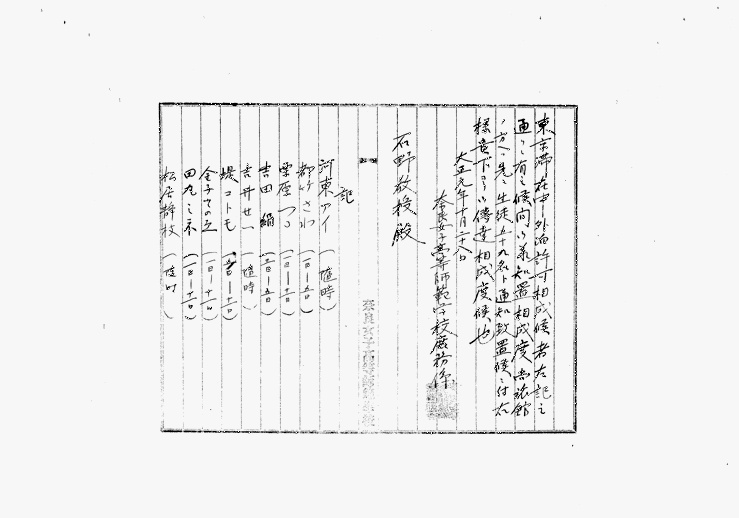 東京滞在中外泊許可相成候者左記之
通ニ有之候間御承知置相成度尚旅館
ノ方ヘハ先ニ生徒五十九名ト通知致置候ニ付右
様貴下ヨリ御傳達相成度候也
大正九年十月二十八日
奈良女子高等師範学校庶務係
石野教授殿
奈良女子高等師範学校
記
河東アイ（随時）
都竹さわ（一日—五日）
栗原つる（一日—十日）
吉田絹（一日—五日）
吉井せい（随時）
堤コトモ
金子その（一日—十一日）
田丸ミネ（一日—十一日）
松居静枝（随時）